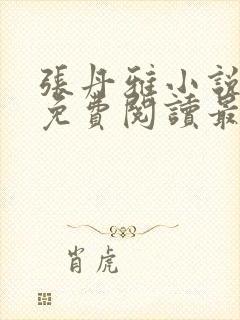 張丹雅小說
免費閱讀最
肖虎